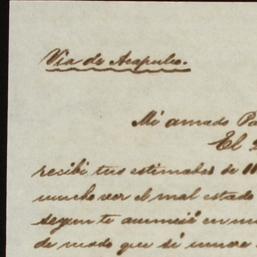 Via de Acapulco.
Mi amado Pa
El
recibi tus estimadas de 11
mucho ver el mal estado
segun te anuncié en m
de modo que si